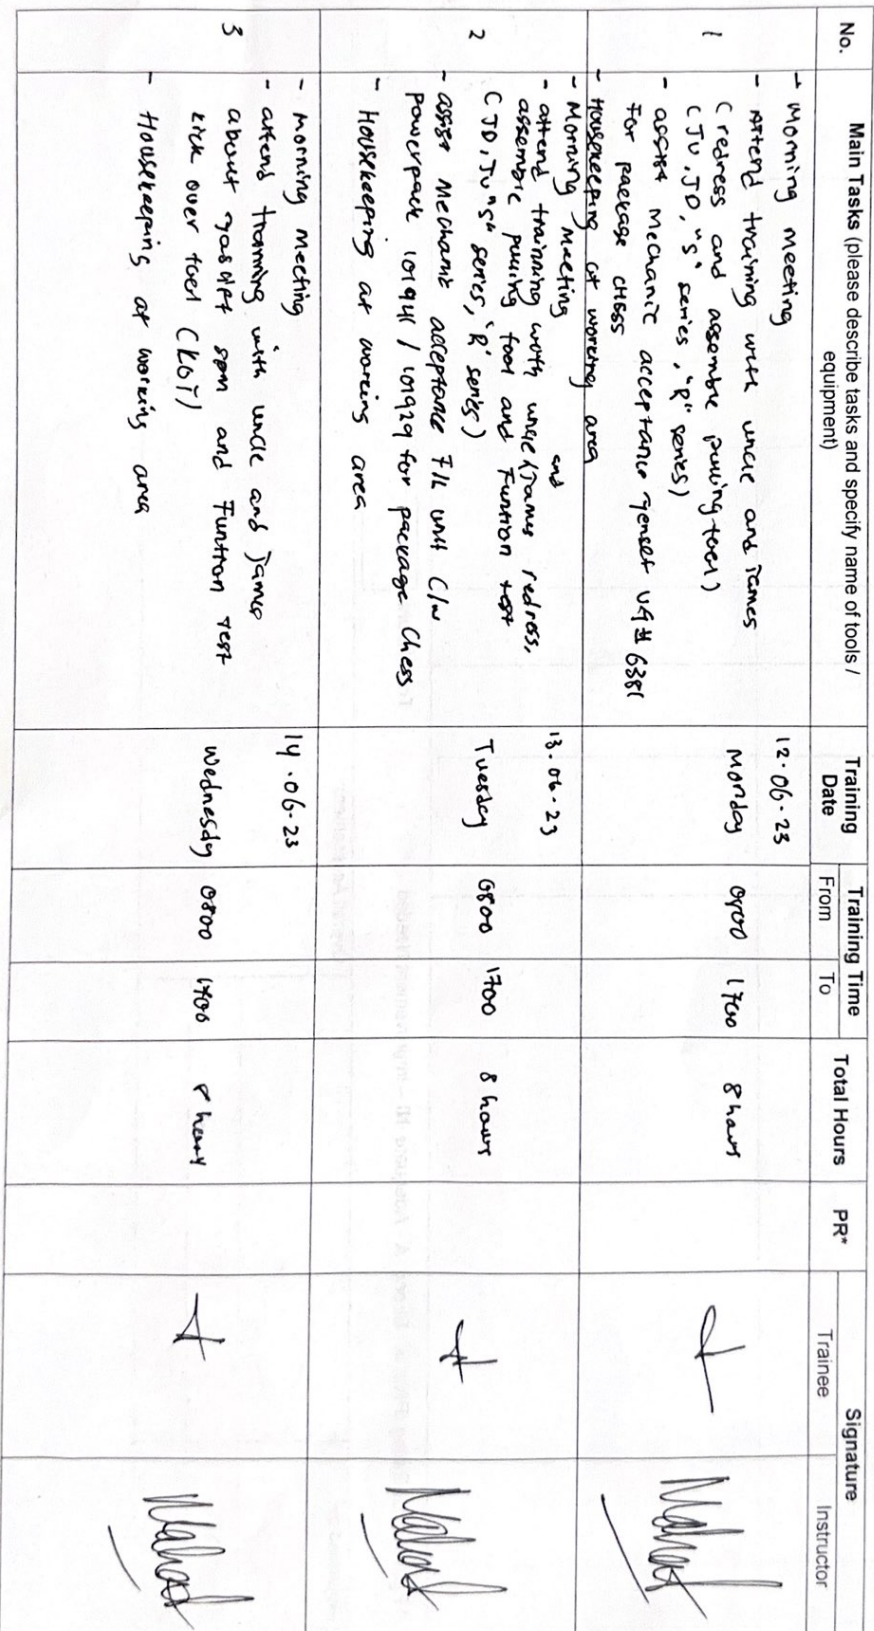 No.
Main Tasks (please describe tasks and specify name of tools /
equipment)
Training
Date
Training Time
From
To
Total Hours
PR*
Signature
Trainee
Instructor
1
- Morning meeting
- Attend training with uncle and James
(redress and assemble pulling tool)
(JU, JD, "S" series, "R" series)
- assist Mechanic acceptance genset VG# 6381
for package chess
- Housekeeping at working area
12.06.23
Monday
0800
1700
8 hours
2
- Morning meeting
- attend trainning with uncle and James redress,
assemble pulling tool and Funtion test
(JD, JU "S" series, "R" series)
- assist Mechanic acceptance F/L unit C/W
Powerpack 101941 / 101929 for package Chess
- Housekeeping at working area
13.06.23
Tuesday
0800
1700
8 hours
3
- morning meeting
- attend tranning with uncle and James
about gaslift spm and Funtion Test
kick over tool (KOT)
- Housekeeping at working area
14.06.23
Wednesday
0800
1700
8 hours